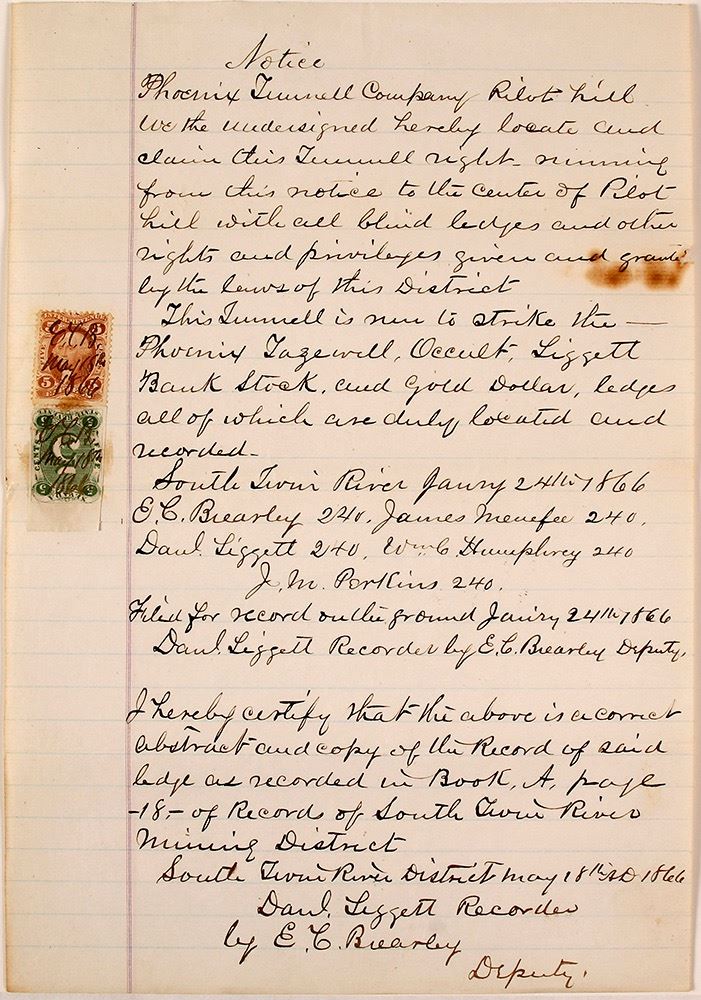 Notice
Phoenix Tunnell Company Pilot hill
We the undersigned hereby locate and
claim this Tunnell right - running
from this notice to the center of Pilot
hill with all blind ledges and other
rights and privileges given and
by the laws of this District
This Tunnell is run to strike the —
Phoenix Tazewell, Occult, Liggett
Bank Stock, and Gold Dollar, ledges
all of which are duly located and
recorded -
South Twin River Janry 24th 1866
E. C. Brearley 240, James Menefee 240,
Danl. Liggett 240, Wm C Humphrey 240
J. M. Perkins 240.
Filed for record on the ground Janry 24th 1866
Danl. Liggett Recorder by E. C. Brearley Deputy.
I hereby certify that the above is a correct
abstract and copy of the Record of said
ledge as recorded in Book, A, page
-18- of Records of South Twin River
Mining District
South Twin River District May 18th AD 1866
Danl. Liggett Recorder
by E. C. Brearley
Deputy.
5
May 18th
1866
5
May 18th
1866